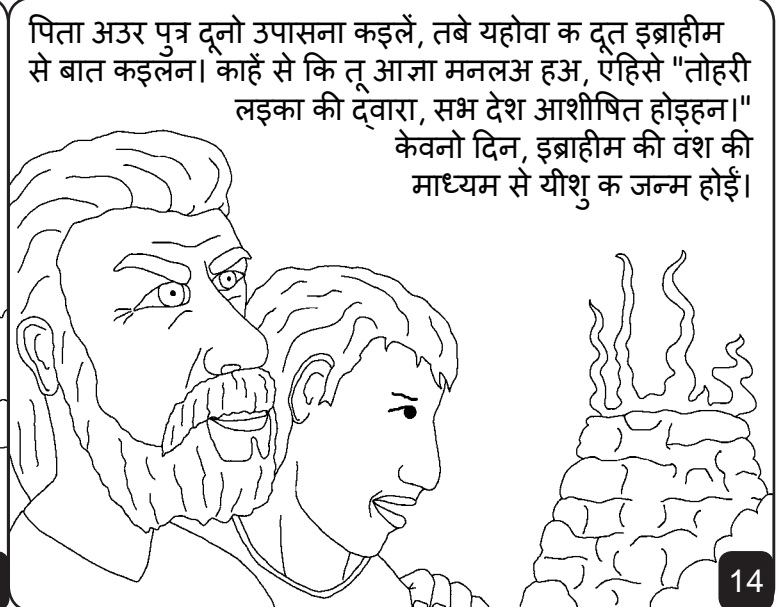 पिता अउर पुत्र दूनो उपासना कइलें, तबे यहोवा क दूत इब्राहीम
से बात कइलन। काहें से कि तू आज्ञा मनलअ हअ, एहिसे "तोहरी
लइका की द्वारा, सभ देश आशीषित होइहन।"
केवनो दिन, इब्राहीम की वंश की
माध्यम से यीशु क जन्म होईं।
14